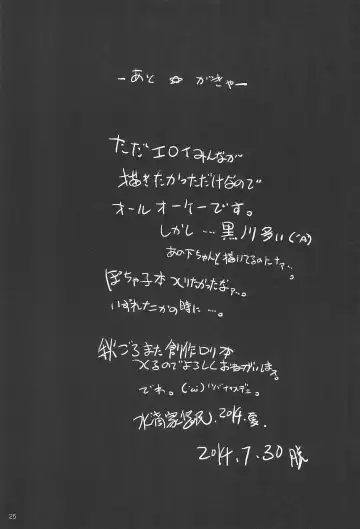 ーあと☆がきゃー
ただエロイみんなが
描きたかっただけなので
オールオーケーです。
しかし…黒川多い(´A`)
あの下ちゃんと描いてるのになァ…。
ぽちゃ子本 メリたかったなァ…。
いずれたこかの時に…。
秋ごろまた創作ロリ本
メるのでよろしくおねがいします。
でわ。(´ω`)
2014.夏.
2014.7.30
25